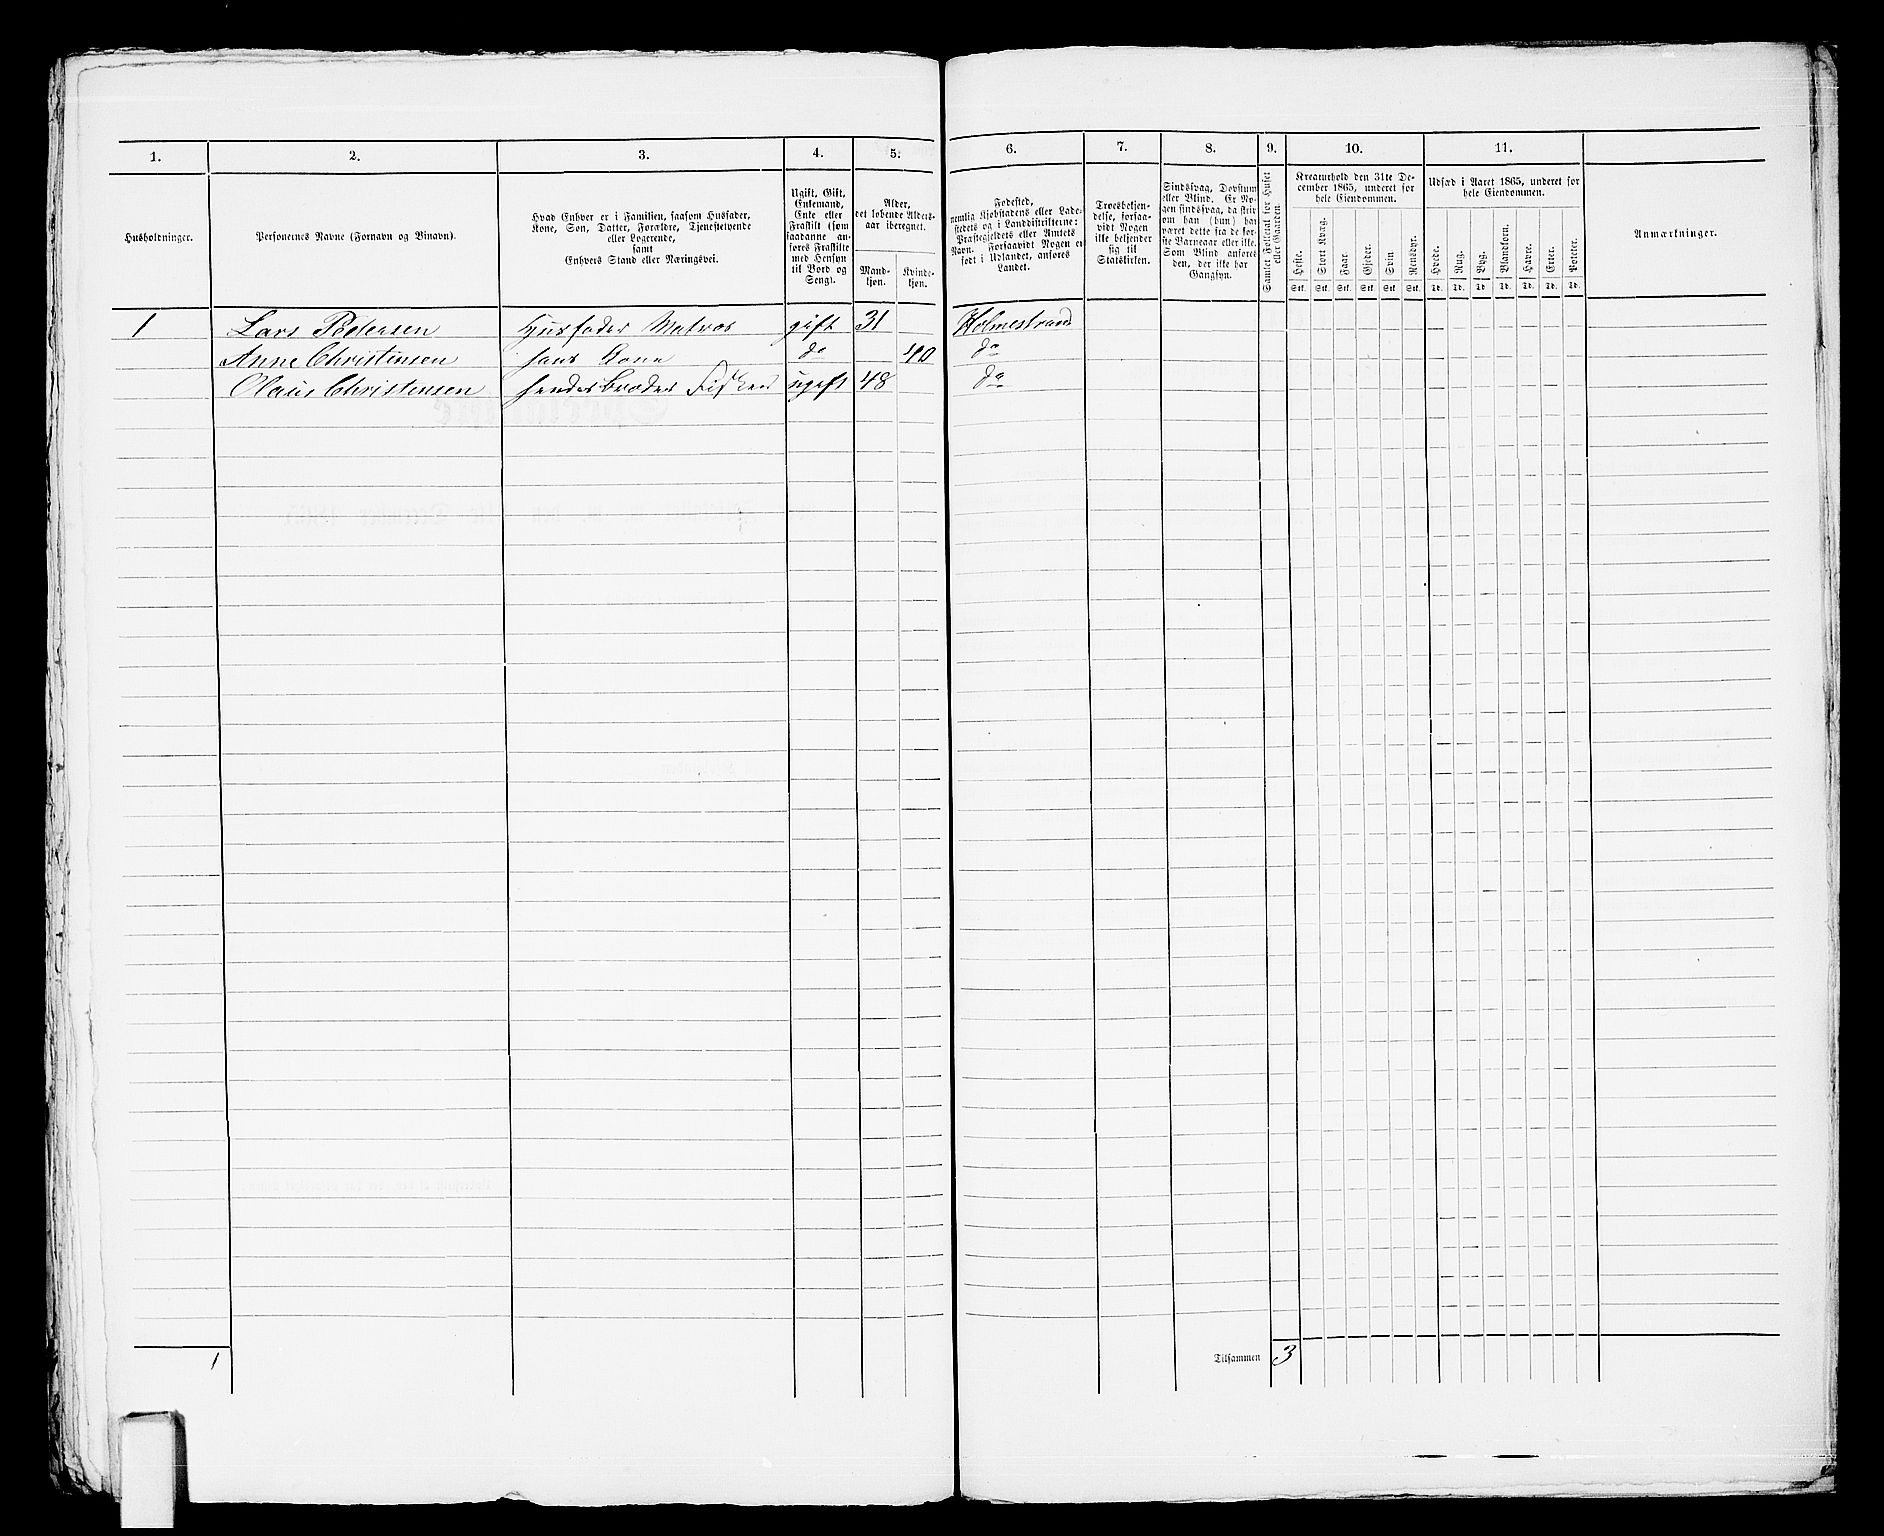 1. 2. 3. 4. 5. 6. 7. 8. 9. 10. 11.
Husholdninger.
Personernes Navne (Fornavn og Binavn).
Hvad Enhver er i Familien, saasom Husfader,
Kone, Søn, Datter, Forældre, Tjenestetyende
eller Logerende,
samt
Enhvers Stand eller Næringsvei.
Ugift, Gift,
Enkemand,
Enke eller
Fraskilt (som
saadanne an-
føres Fraskilte
med Hensyn
til Bord og
Seng).
Alder,
det løbende Alders-
aar iberegnet.
Mand-
kjøn.
Kvinde-
kjøn.
Fødested,
nemlig Kjøbstadens eller Lade-
stedets og i Landdistrikterne:
Præstegjeldets eller Amtets
Navn. Forsaavidt Nogen er
født i Udlandet, anføres
Landet.
Troesbekjen-
delse, forsaa-
vidt Nogen
ikke bekjender
sig til
Statskirken.
Sindssvag, Døvstum
eller Blind. Er No-
gen sindssvag, da skriv
om han (hun) har
været dette fra de før-
ste Barneaar eller ikke.
Som Blind anføres
den, der ikke har
Gangsyn.
Samlet Folketal for Huset
eller Gaarden.
Kreaturhold den 31te De-
cember 1865, underet for
hele Eiendommen.
Heste. Stort Kvæg. Faar. Gjeder. Svin Rensdyr.
Stk. Stk. Stk. Stk. Stk. Stk.
Udsæd i Aaret 1865, underet for
hele Eiendommen.
Hvede. Rug. Byg. Blandkorn. Havre. Erter. Poteter.
Td. Td. Td. Td. Td. Td. Td.
Anmærkninger.
1 Lars Pedersen Husfader Matros gift 31 Holmestrand
Anne Christensen hans Kone do 40 do
Olaus Christensen hendes broder Fisker ugift 48 do
1 Tilsammen 3